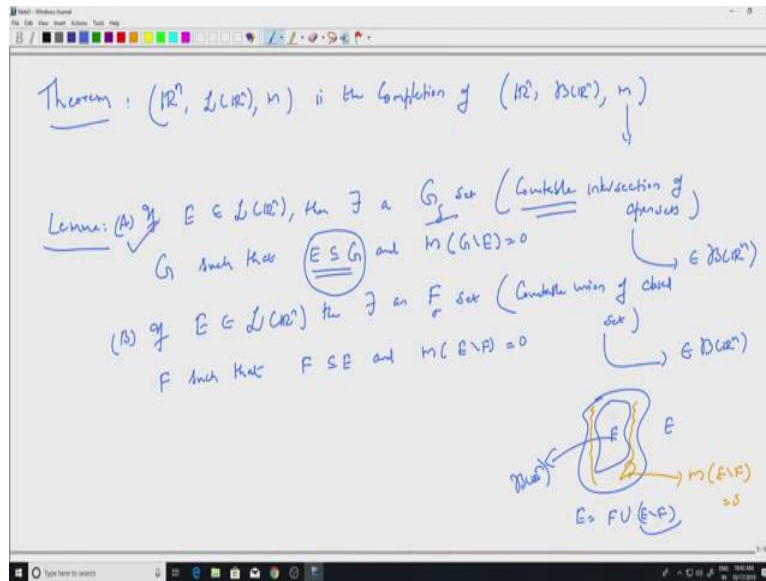 Note1 - Windows Journal
File Edit View Insert Actions Tools Help
Theorem : (ℝⁿ, L(ℝⁿ), m) is the Completion of (ℝⁿ, B(ℝⁿ), m)
Lemma: (A) If E ∈ L(ℝⁿ), then ∃ a G_δ set (Countable intersection of open sets)
→ ∈ B(ℝⁿ)
G such that E ⊆ G and m(G\E) = 0
(B) If E ∈ L(ℝⁿ) then ∃ an F_σ set (Countable union of closed set)
→ ∈ B(ℝⁿ)
F such that F ⊆ E and m(E\F) = 0
F
E
B(ℝⁿ)
m(E\F)
= 0
E = F ∪ (E\F)
Type here to search
10/17/2018